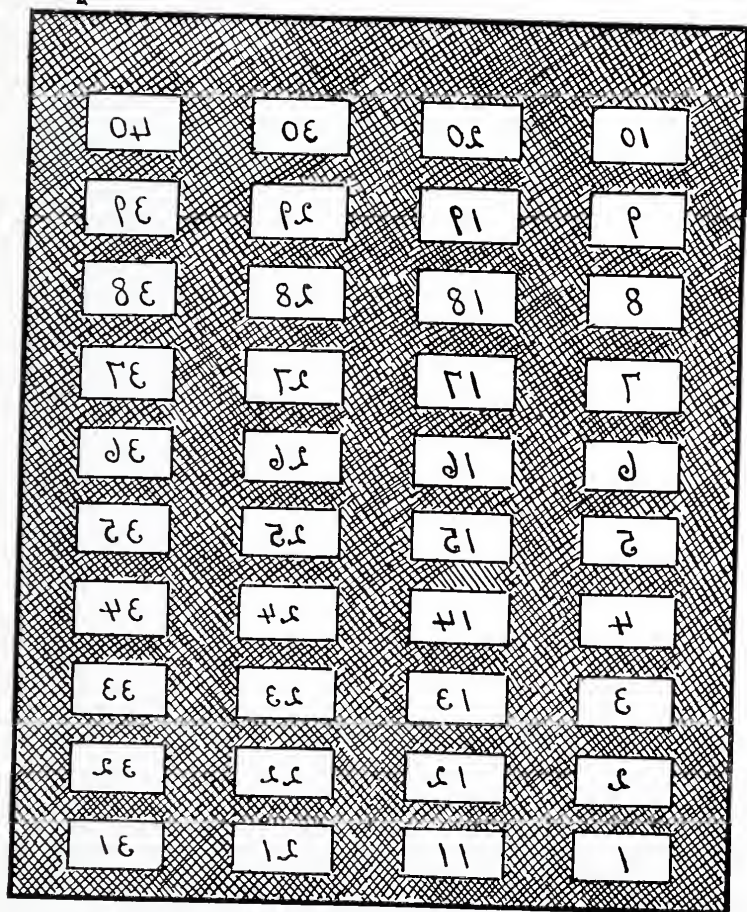 40 30 20 10
39 29 19 9
38 28 18 8
37 27 17 7
36 26 16 6
35 25 15 5
34 24 14 4
33 23 13 3
32 22 12 2
31 21 11 1